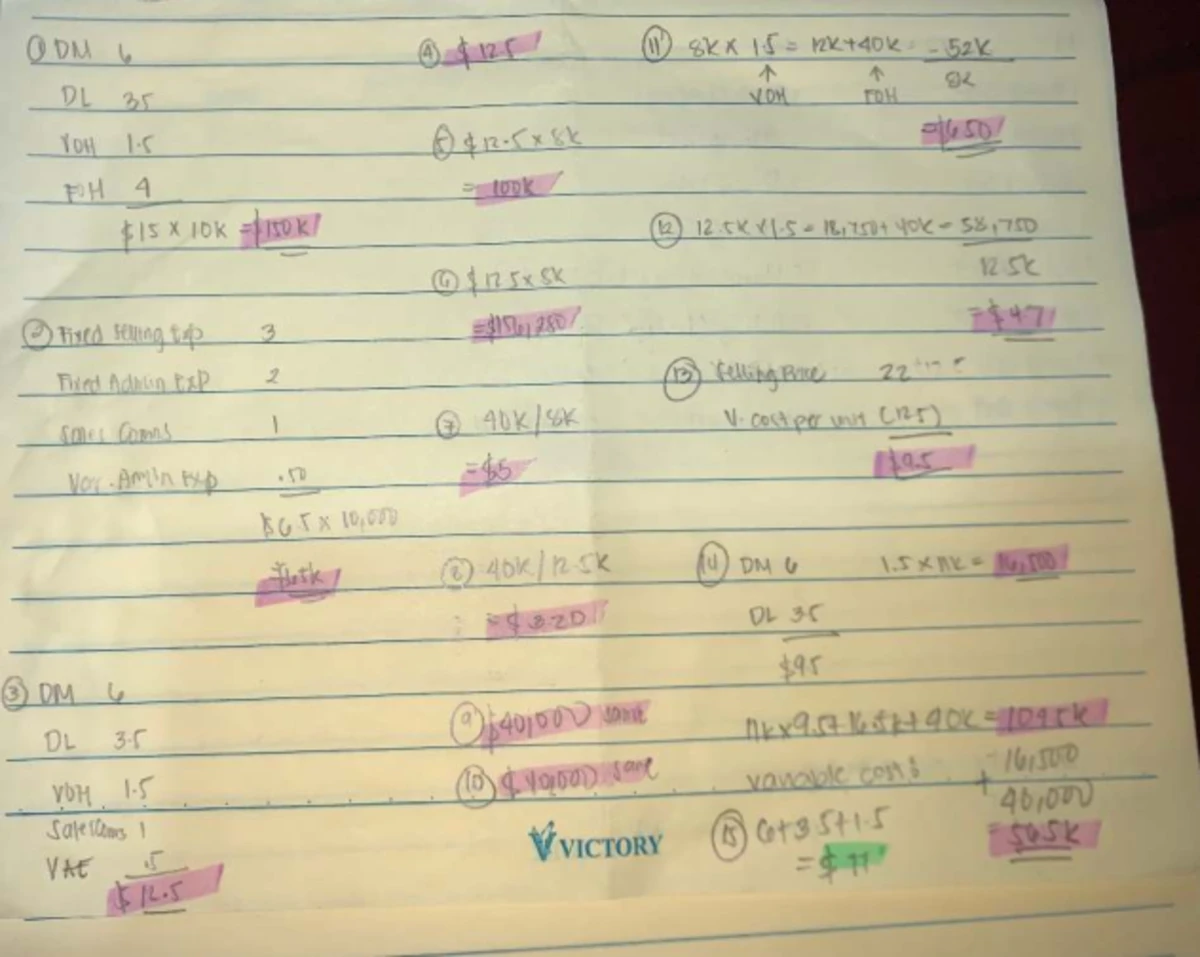 ① DM 6
DL 3.5
VOH 1.5
FOH 4
$15 X 10K = $150K
② Fixed Selling Exp 3
Fixed Admin Exp 2
Sales Comms 1
Var. Amin Exp .50
$6.5 X 10,000
$65K
③ DM 6
DL 3.5
VOH 1.5
Sales Coms 1
VAE .5
$ 12.5
④ $ 12.5
⑤ $12.5 x 8K
= 100K
⑥ $12.5 x
⑦ 40K / 8K
= $5
⑧ 40K / 12.5K
= $ 3.20
⑨ $40,000 same
⑩ $ 40,000 same
⑪ 8K X 1.5 = 12K + 40K = 52K
↑ ↑ 8K
VOH FOH
= $6.50
⑫ 12.5K X 1.5 = 18,750 + 40K = 58,750
12.5K
= $ 4.7
⑬ Selling Price 22
V. cost per unit (12.5)
$9.5
⑭ DM 6 1.5 x 11K = 16,500
DL 3.5
$9.5
11K x 9.5 + 16.5K + 40K =
variable costs 16,500
+ 40,000
= 56.5K
⑮ 6+3.5+1.5
= $ 11
VICTORY